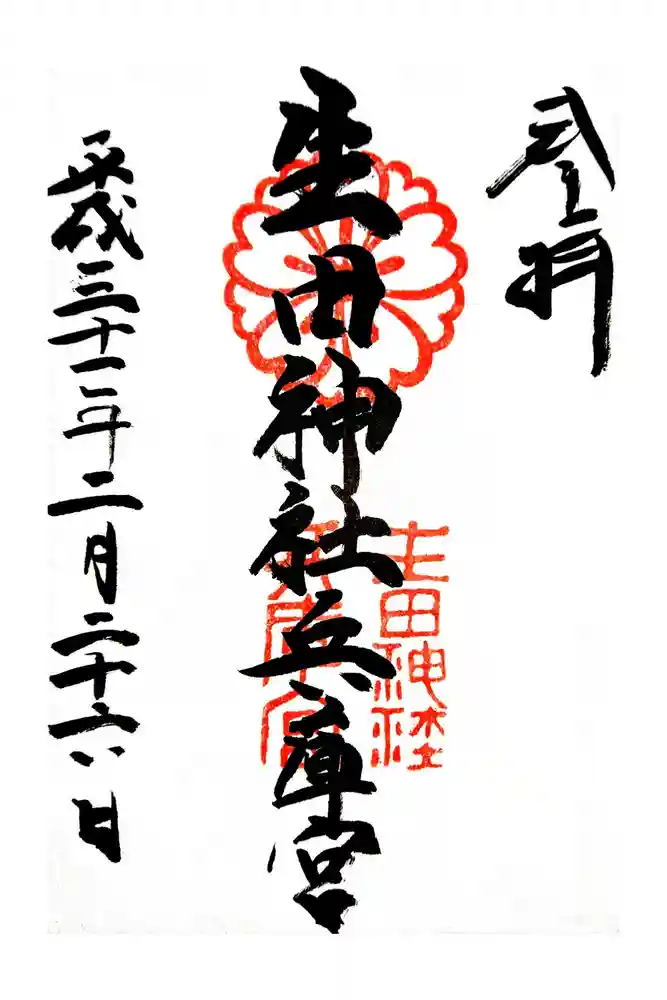 生田神社兵庫宮
平成三十一年二月二十六日
生田神社
兵庫宮